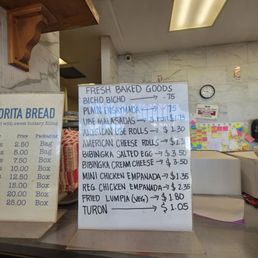 ORITA BREAD
with sweet buttery filling
Price Packaging
2.50 Bag
5.00 Bag
5.00 Box
10.00 Box
12.50 Box
15.00 Box
20.00 Box
25.00 Box
FRESH BAKED GOODS
BICHO BICHO .75
PLAIN ENSAYMADA .75
UBE MALASADAS
MEXICAN UBE ROLLS → $1.30
AMERICAN CHEESE ROLLS →
BIBINGKA SALTED EGG → $3.50
BIBINGKA CREAM CHEESE → $3.50
MINI CHICKEN EMPANADA → $1.35
REG. CHICKEN EMPANADA → $2.35
FRIED LUMPIA (VEG) → $1.80
TURON → $1.05